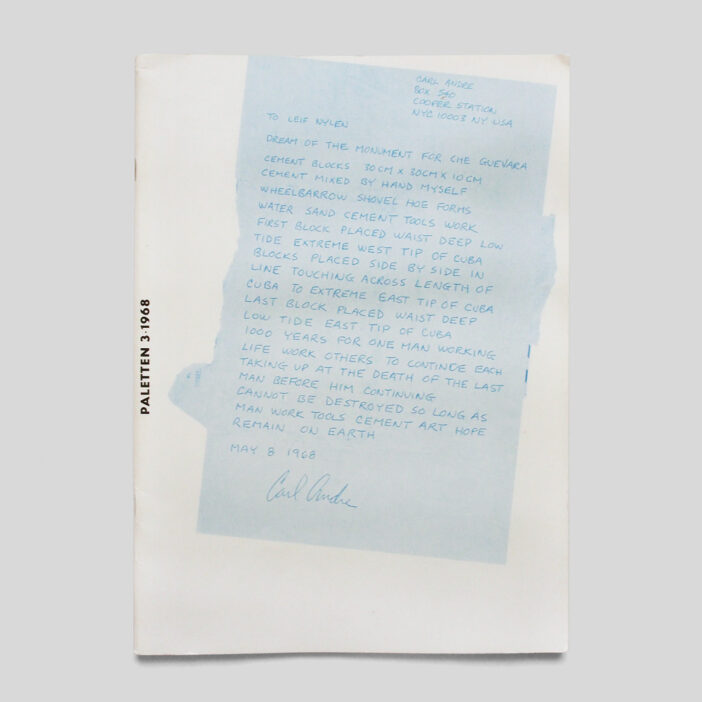 CARL ANDRE
BOX 540
COOPER STATION
NYC 10003 NY USA
TO LEIF NYLEN
DREAM OF THE MONUMENT FOR CHE GUEVARA
CEMENT BLOCKS 30 CM X 30 CM X 10 CM
CEMENT MIXED BY HAND MYSELF
WHEELBARROW SHOVEL HOE FORMS
WATER SAND CEMENT TOOLS WORK
FIRST BLOCK PLACED WAIST DEEP LOW
TIDE EXTREME WEST TIP OF CUBA
BLOCKS PLACED SIDE BY SIDE IN
LINE TOUCHING ACROSS LENGTH OF
CUBA TO EXTREME EAST TIP OF CUBA
LAST BLOCK PLACED WAIST DEEP
LOW TIDE EAST TIP OF CUBA
1000 YEARS FOR ONE MAN WORKING
LIFE WORK OTHERS TO CONTINUE EACH
TAKING UP AT THE DEATH OF THE LAST
MAN BEFORE HIM CONTINUING
CANNOT BE DESTROYED SO LONG AS
MAN WORK TOOLS CEMENT ART HOPE
REMAIN ON EARTH
MAY 8 1968
Carl Andre
PALETTEN 3·1968